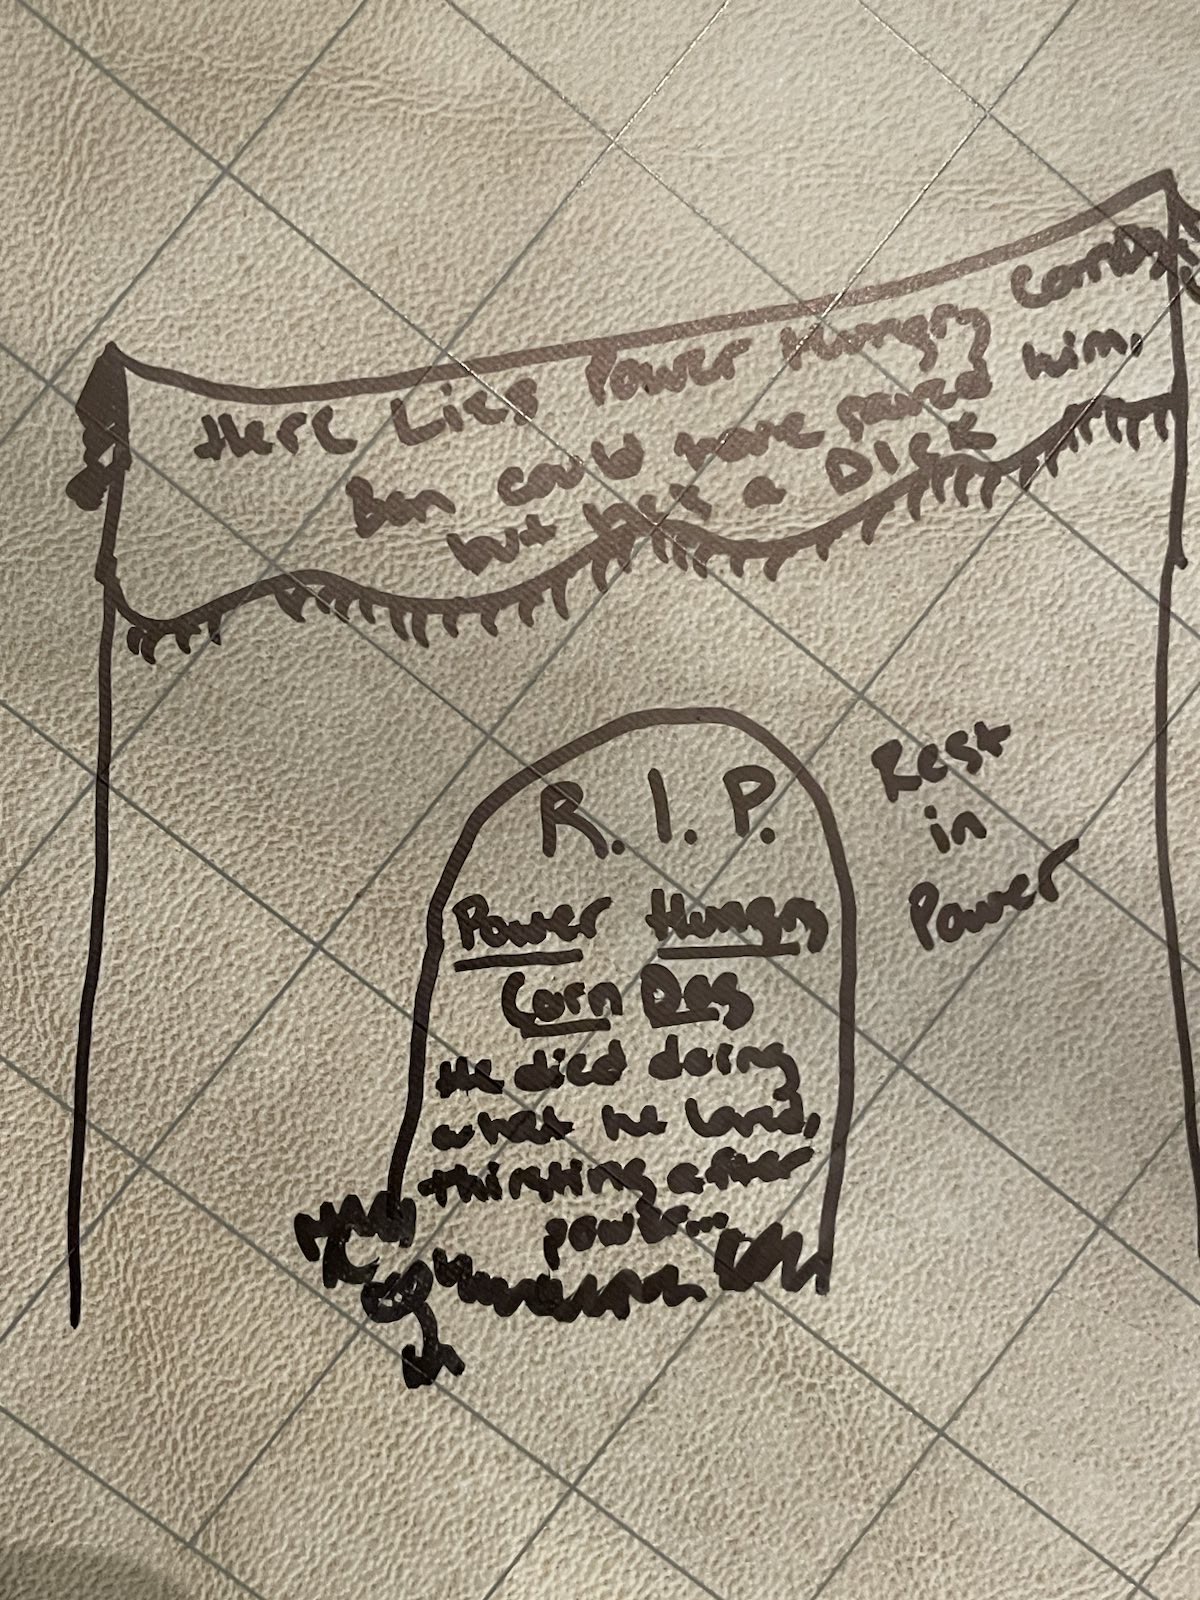 Here Lies Power Hungry CornDog
Ben could have saved him,
but he's a Dick
R.I.P.
Power Hungry
Corn Dog
He died doing
what he loved,
thirsting after
power...
Rest
in
Power